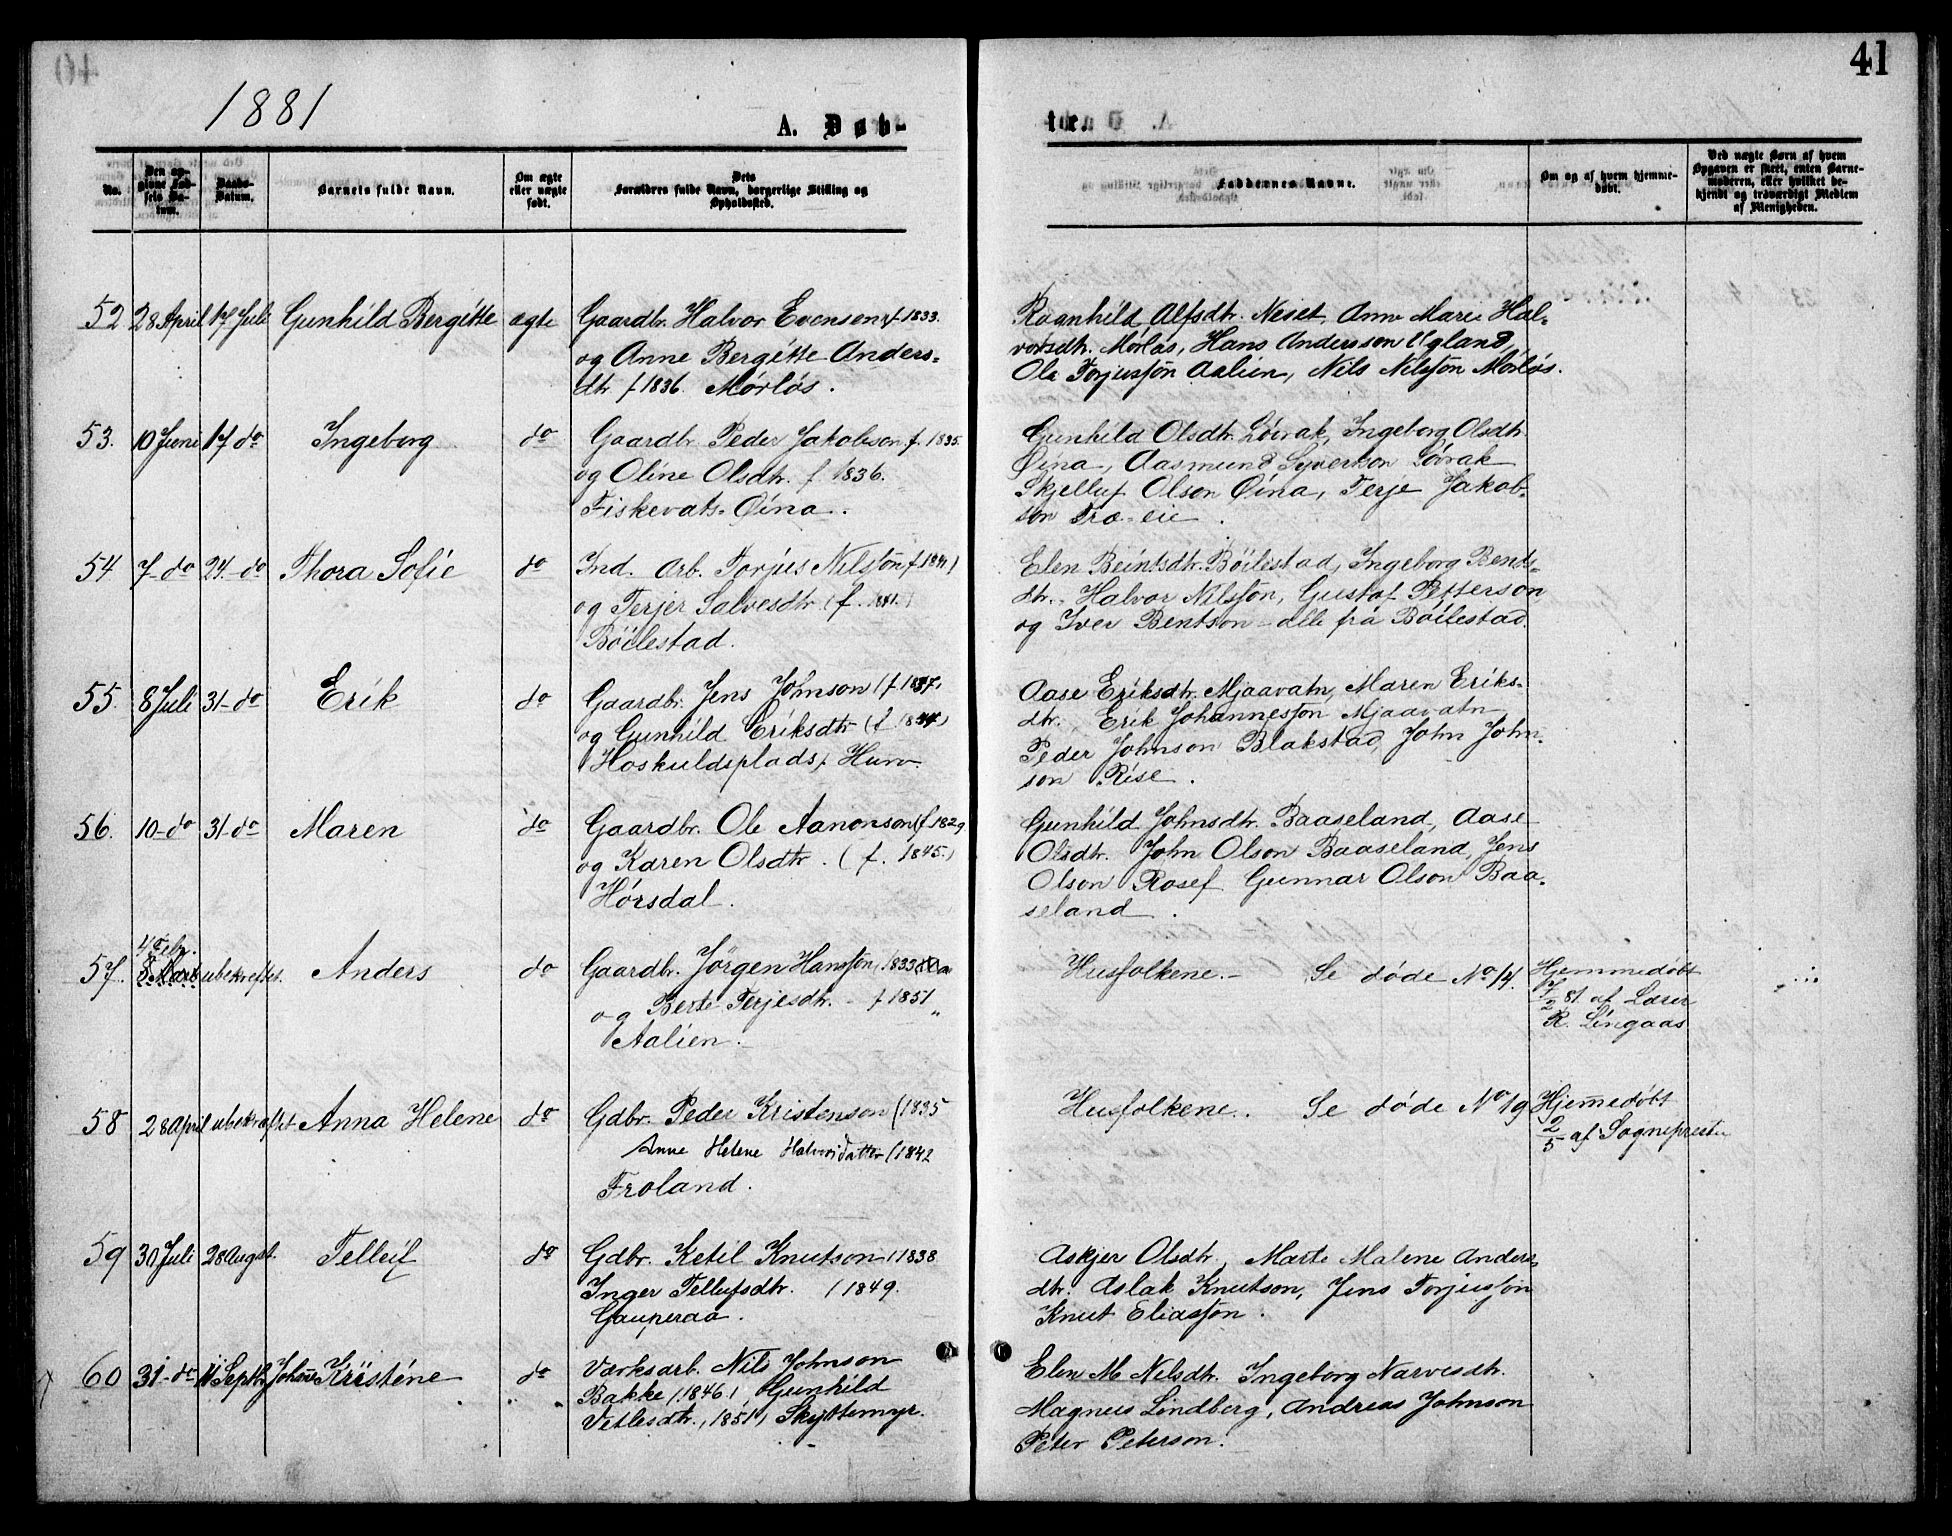 41
1881
A. Døb-
te.
No.
Den op-
givne Fød-
sels Da-
tum.
Daabs-
Datum.
Barnets fulde Navn.
Om ægte
eller uægte
født.
Dets
Forældres fulde Navn, borgerlige Stilling og
Opholdssted.
Faddernes Navne.
Om og af hvem hjemme-
døbt.
Ved uægte Børn af hvem
Opgaven er skeet, enten Barne-
moderen, eller hvilket be-
kjendt og troværdigt Medlem
af Menigheden.
52 28 April 17 Juli Gunhild Bergitte ægte Gaardbr. Halvor Evensen f. 1833.
og Anne Bergitte Anders-
dtr f 1836. Mørløs.
Ragnhild Alfsdtr. Neset, Anne Marie Hal-
vorsdtr. Mørløs, Hans Andersson Ugland,
Ole Torjussøn Aalien, Nils Nilssøn Mørløs.
53. 10 Juni 17 do Ingeborg do Gaardbr Peder Jakobson f. 1835.
og Oline Olsdtr. f 1836.
Fiskevats-Øina.
Gunhild Olsdtr. Løvrak, Ingeborg Olsdtr.
Øina, Aasmund Syvertson Løvrak
Skjelluf Olson Øina, Terje Jakob-
son Træ-eie.
54 7-do 24-do Thora Sofie do Ind. Arb. Torjus Nilssøn f 1841)
og Terjer Salvesdtr. (f. 1841.)
Böilestad.
Elen Beintsdtr. Böilestad, Ingeborg Bents-
dtr., Halvor Nilssøn, Gustaf Petterson
og Iver Bentson - alle fra Böilestad.
55. 8 Juli 31-do Erik do Gaardbr. Jens Johnson (f. 1837,
og Gunhild Eriksdtr (f 1844)
Hoskuldsplads, Hurv.
Aase Eriksdtr. Mjaavatn, Maren Eriks-
dtr., Erik Johannessøn Mjaavatn
Peder Johnson Blakstad, John John-
son Rise.
56. 10-do 31-do Maren do Gaardbr. Ole Aanonson (f. 1829.
og Karen Olsdtr. (f. 1845.)
Hørsdal.
Gunhild Johnsdtr. Baaseland, Aase
Olsdtr. John Olson Baaseland, Jens
Olson Rosef Gunnar Olson Baa-
seland.
4de Feby.
57. 8 Marts ubekræftet. Anders do Gaardbr. Jörgen Hanssøn, 1833
og Berte Terjesdtr. - f 1851 "
Aalien.
Husfolkene. - Se døde No 14. Hjemmedøbt
7/2 81. af Lærer
R. Lingaas.
58 28 April ubekræftet Anna Helene do Gdbr. Peder Kristenson (1835
Anne Helene Halvorsdatter (1842
Froland.
Husfolkene. Se døde No 19 Hjemmedøbt
2/5 af Sogneprester
59 30 Juli 28 Augst. Telleif do Gdbr. Ketil Knutson (1838
Inger Tellefsdtr. (1849.
Gauperaa.
Askjer Olsdtr., Marte Malene Anders-
dtr. Aslak Knutson, Jens Torjussøn
Knut Eliassøn.
60 31-do 11 Septbr Johanne Kristéne do Værksarb. Nils Johnson
Bakke (1846), Gunhild
Vetlesdtr., 1851, Skyttemyr.
Elen M Nilsdtr. Ingeborg Narvesdtr.
Magnus Lindberg, Andreas Johnson
Peter Peterson.